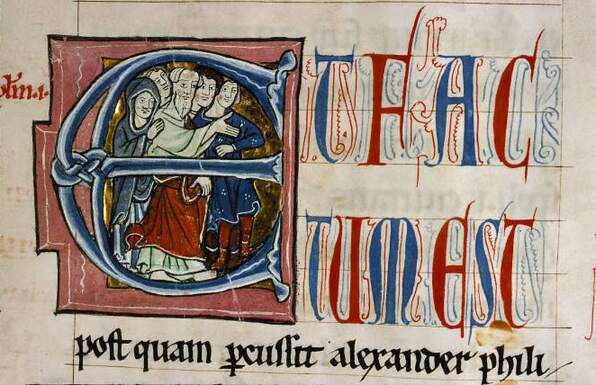 ET FAC
TUM EST
post quam ꝑcussit alexander phili